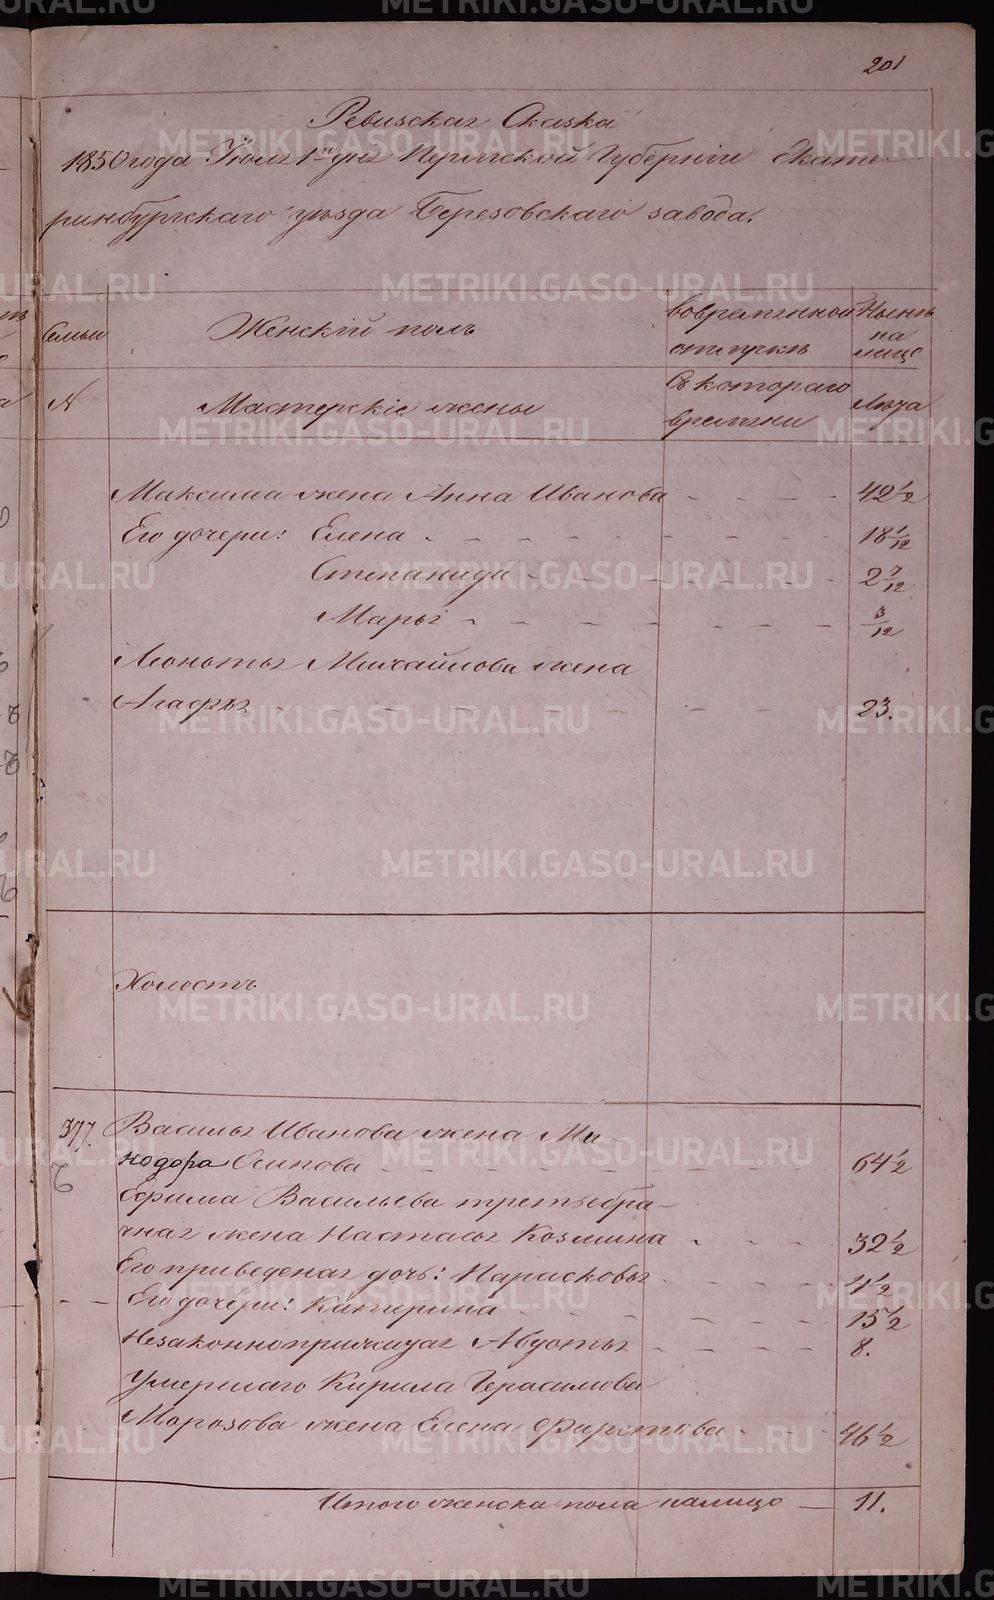 201
Ревизская Сказка
1850 года Июля 1го дня Пермской Губернiи Екате-
ринбургскаго уѣзда Березовскаго завода.
Семьи
Женскiй полъ
вовременной
отлучкѣ
Нынѣ
на
лицо
№
Мастерскiе жены
Съ котораго
времени
Лѣта
Максима жена Анна Иванова - - - - 42 1/2
Его дочери: Елена - - - - - - 18 1/12
Степанида - - - - - - 2 7/12
Марья - - - - - - 3/12
Леонтья Михайлова жена
Агафья - - - - - - 23.
Холостъ
377. Василья Иванова жена Ми-
нодора Осипова - - - - - - 64 1/2
Ефима Васильева третьебра-
чная жена Настасья Козмина - - - 32 1/2
Его приведеная дочь: Парасковья - - - - 4 1/2
Его дочери: Катерина - - - - - - 15 1/2
Незаконноприжитая Авдотья - - - - - 8.
Умершаго Кирила Герасимова
Морозова жена Елена - - - 46 1/2
Итого женска пола налицо — 11.
METRIKI.GASO-URAL.RU